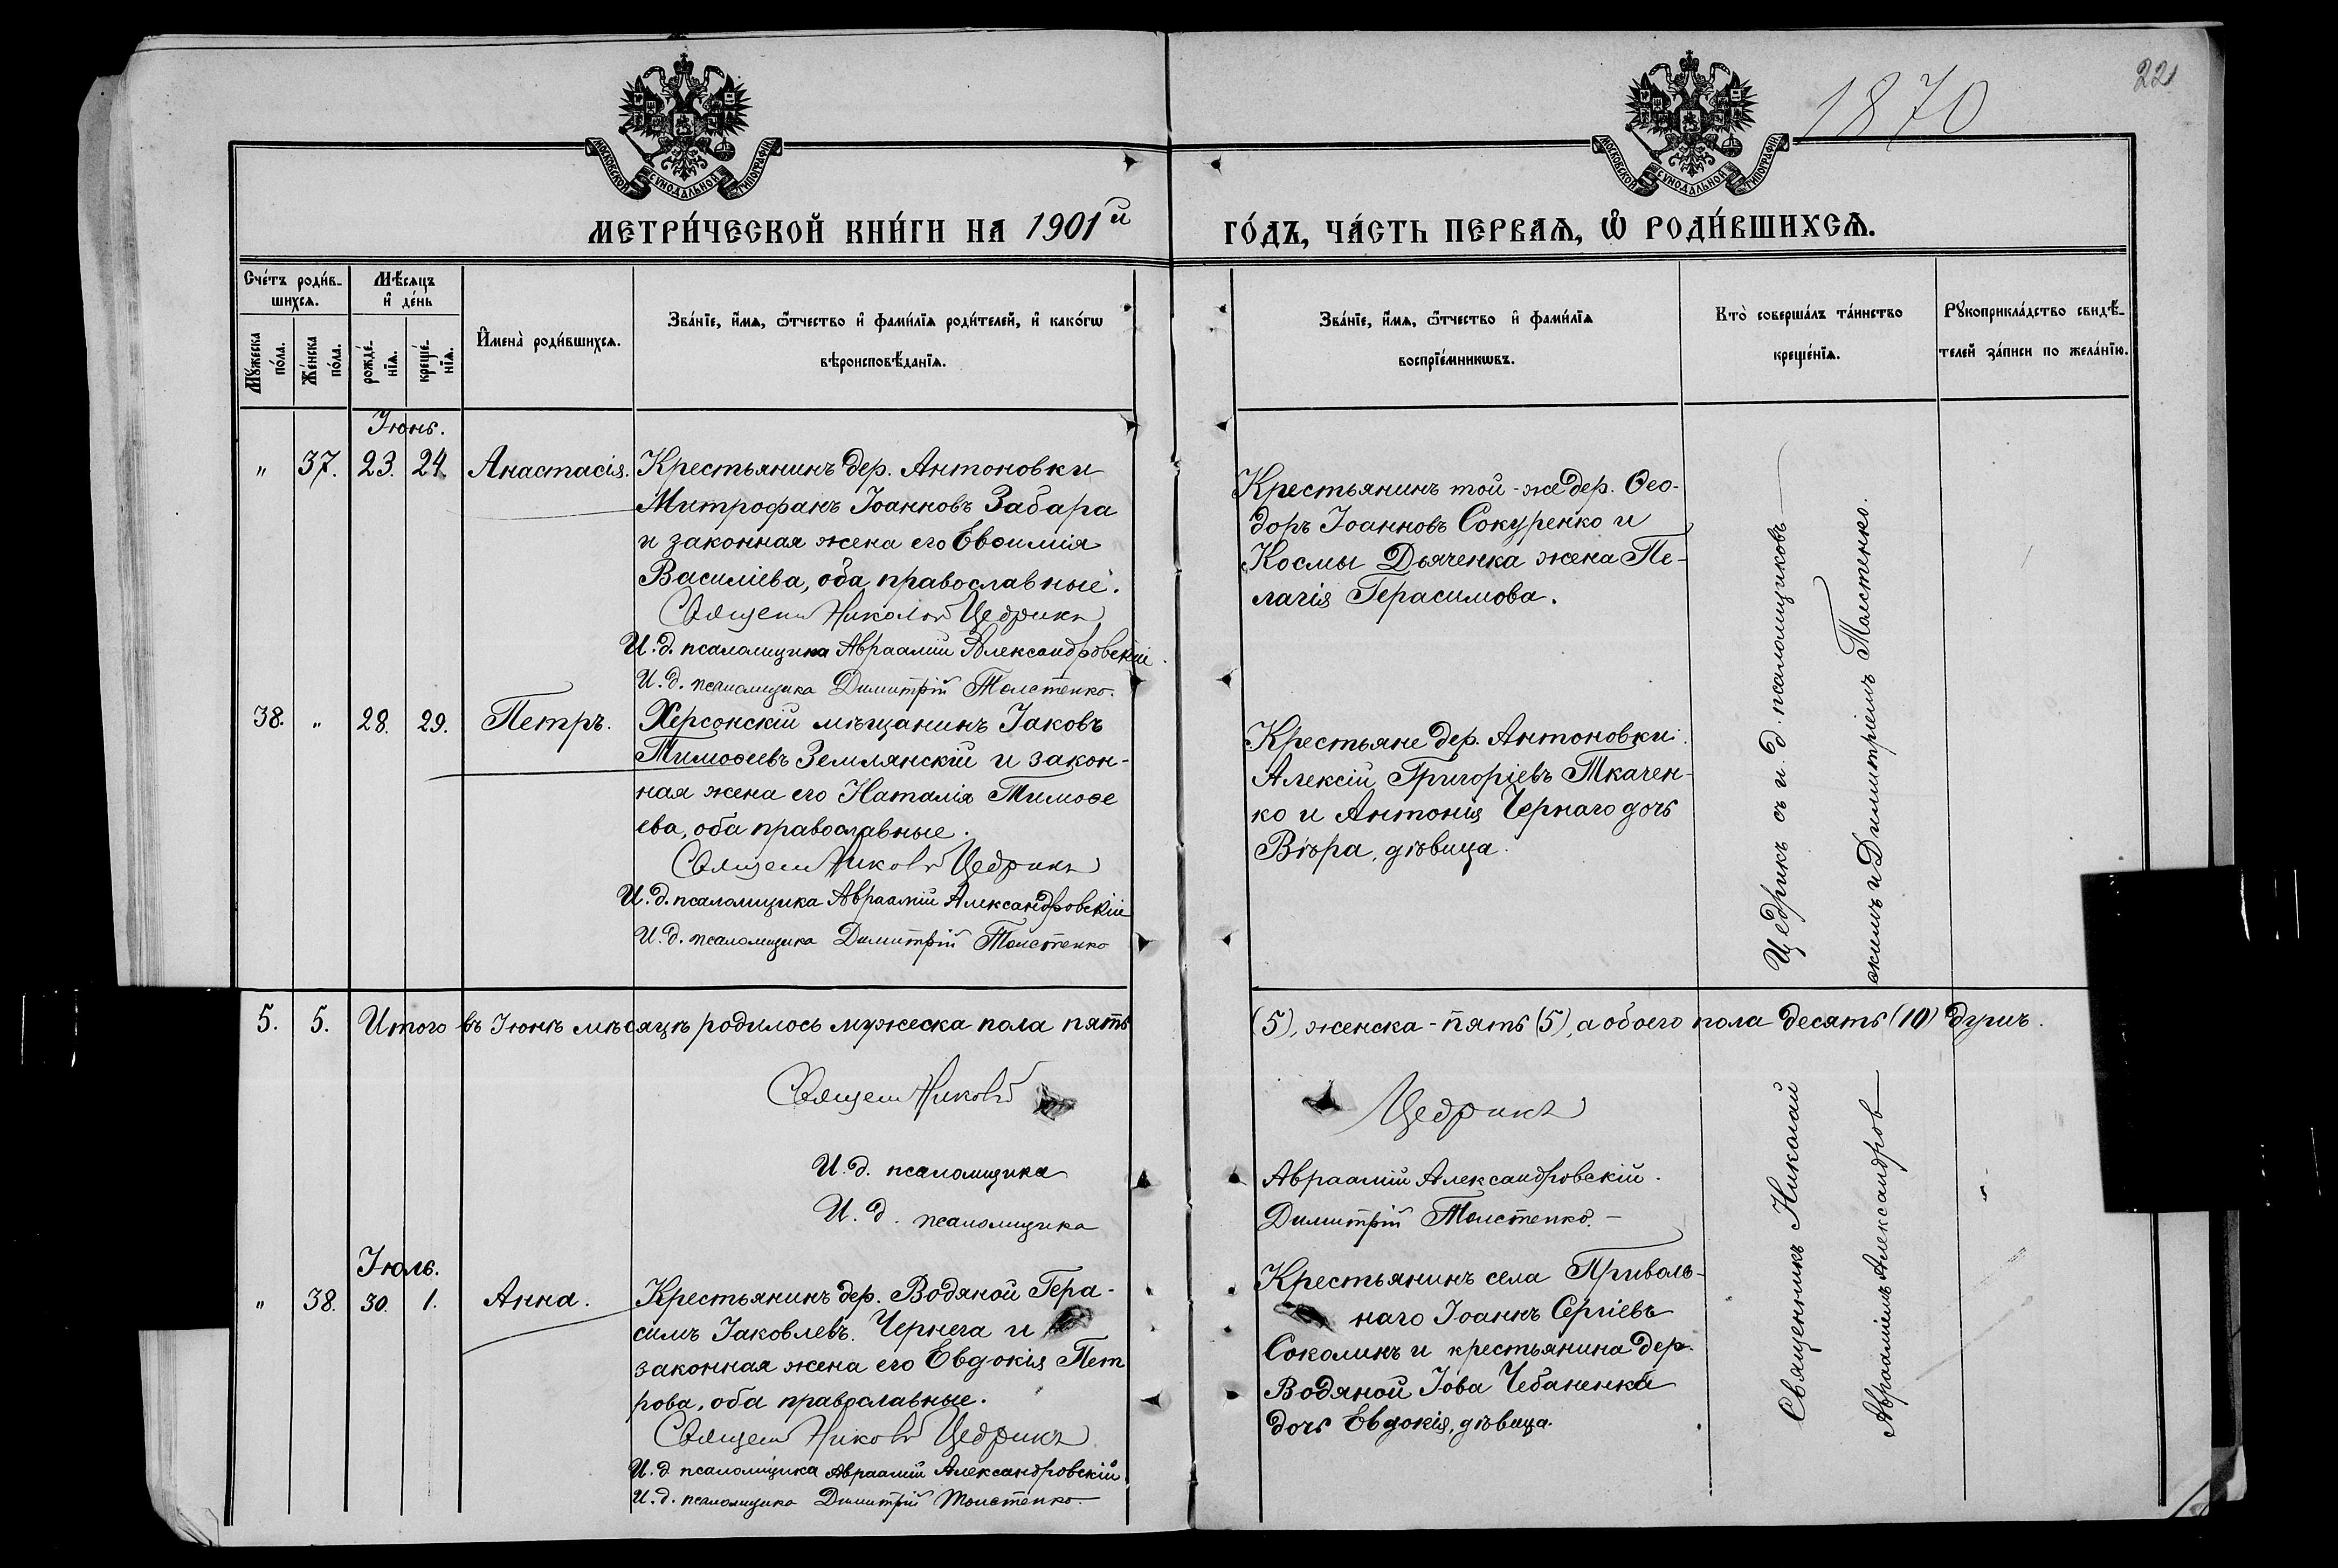 1870
221
МОСКОВСКОЙ СѴНОДАЛЬНОЙ ТИПОГРАФІИ
МОСКОВСКОЙ СѴНОДАЛЬНОЙ ТИПОГРАФІИ
МЕТРИ́ЧЕСКОЙ КНИ́ГИ НА 1901й ГО́ДЪ, ЧА́СТЬ ПЕРВАѦ, Ѡ РОДИ́ВШИХСѦ.
Сче́тъ роди́в-
шихсѧ.
Мѣсяцъ
и҆ де́нь
Мꙋ́жеска
по́ла.
Же́нска
по́ла.
рожде́-
нїѧ.
креще́-
нїѧ.
И҆мена̀ роди́вшихсѧ.
Зва́нїе, и҆́мѧ, ѻ҆́тчество и҆ фами́лїѧ роди́телей, и҆ како́гѡ
вѣроисповѣ́данїѧ.
Зва́нїе, и҆́мѧ, ѻ҆́тчество и҆ фами́лїѧ
воспрїе́мникѡвъ.
Кто̀ соверша́лъ та́инство
креще́нїѧ.
Рꙋкоприкла́дство свидѣ́-
телей за́писи по жела́нїю.
Іюнь.
" 37. 23. 24. Анастасія.
Крестьянинъ дер. Антоновки
Митрофанъ Іоанновъ Забара
и законная жена его Евѳимія
Василіева, оба православные.
Священ Николай Щедрикъ
И. д. псаломщика Авраамій Александровскій.
И. д. псаломщика Димитрій Толстенко.
Крестьянинъ той-же дер. Ѳео-
доръ Іоанновъ Сокуренко и
Космы Дьяченка жена Пе-
лагія Герасимова.
38. " 28. 29. Петръ.
Херсонскій мѣщанинъ Іаковъ
Тимоѳеевъ Землянскій и закон-
ная жена его Наталія Тимоѳе
ева, оба православные.
Священ Николай Щедрикъ
И. д. псаломщика Авраамій Александровскій
И. д. псаломщика Димитрій Толстенко
Крестьяне дер. Антоновки:
Алексій Григоріевъ Ткачен-
ко и Антонія Чернаго дочь
Вѣра, дѣвица.
5. 5. Итого въ Іюнѣ мѣсяцѣ родилось мужеска пола пять (5), женска - пять (5), а обоего пола десять (10) душъ.
Священ Николай Щедрикъ
И. д. псаломщика Авраамій Александровскій.
И. д. псаломщика Димитрій Толстенко.
Іюль.
" 38. 30. 1. Анна.
Крестьянинъ дер. Водяной Гера-
симъ Іаковлевъ Чернега и
законная жена его Евдокія Пет
рова, оба православные.
Священ Николай Щедрикъ
И. д псаломщика Авраамій Александровскій
И. д. псаломщика Димитрій Толстенко.
Крестьянинъ села Приволь-
наго Іоаннъ Сергіевъ
Соколинъ и крестьянина дер.
Водяной Іова Чебаненка
дочь Евдокія, дѣвица.
Священникъ Николай Щедрикъ съ и. д. псаломщиковъ
Авраамiемъ Александровскимъ и Димитріемъ Толстенко.